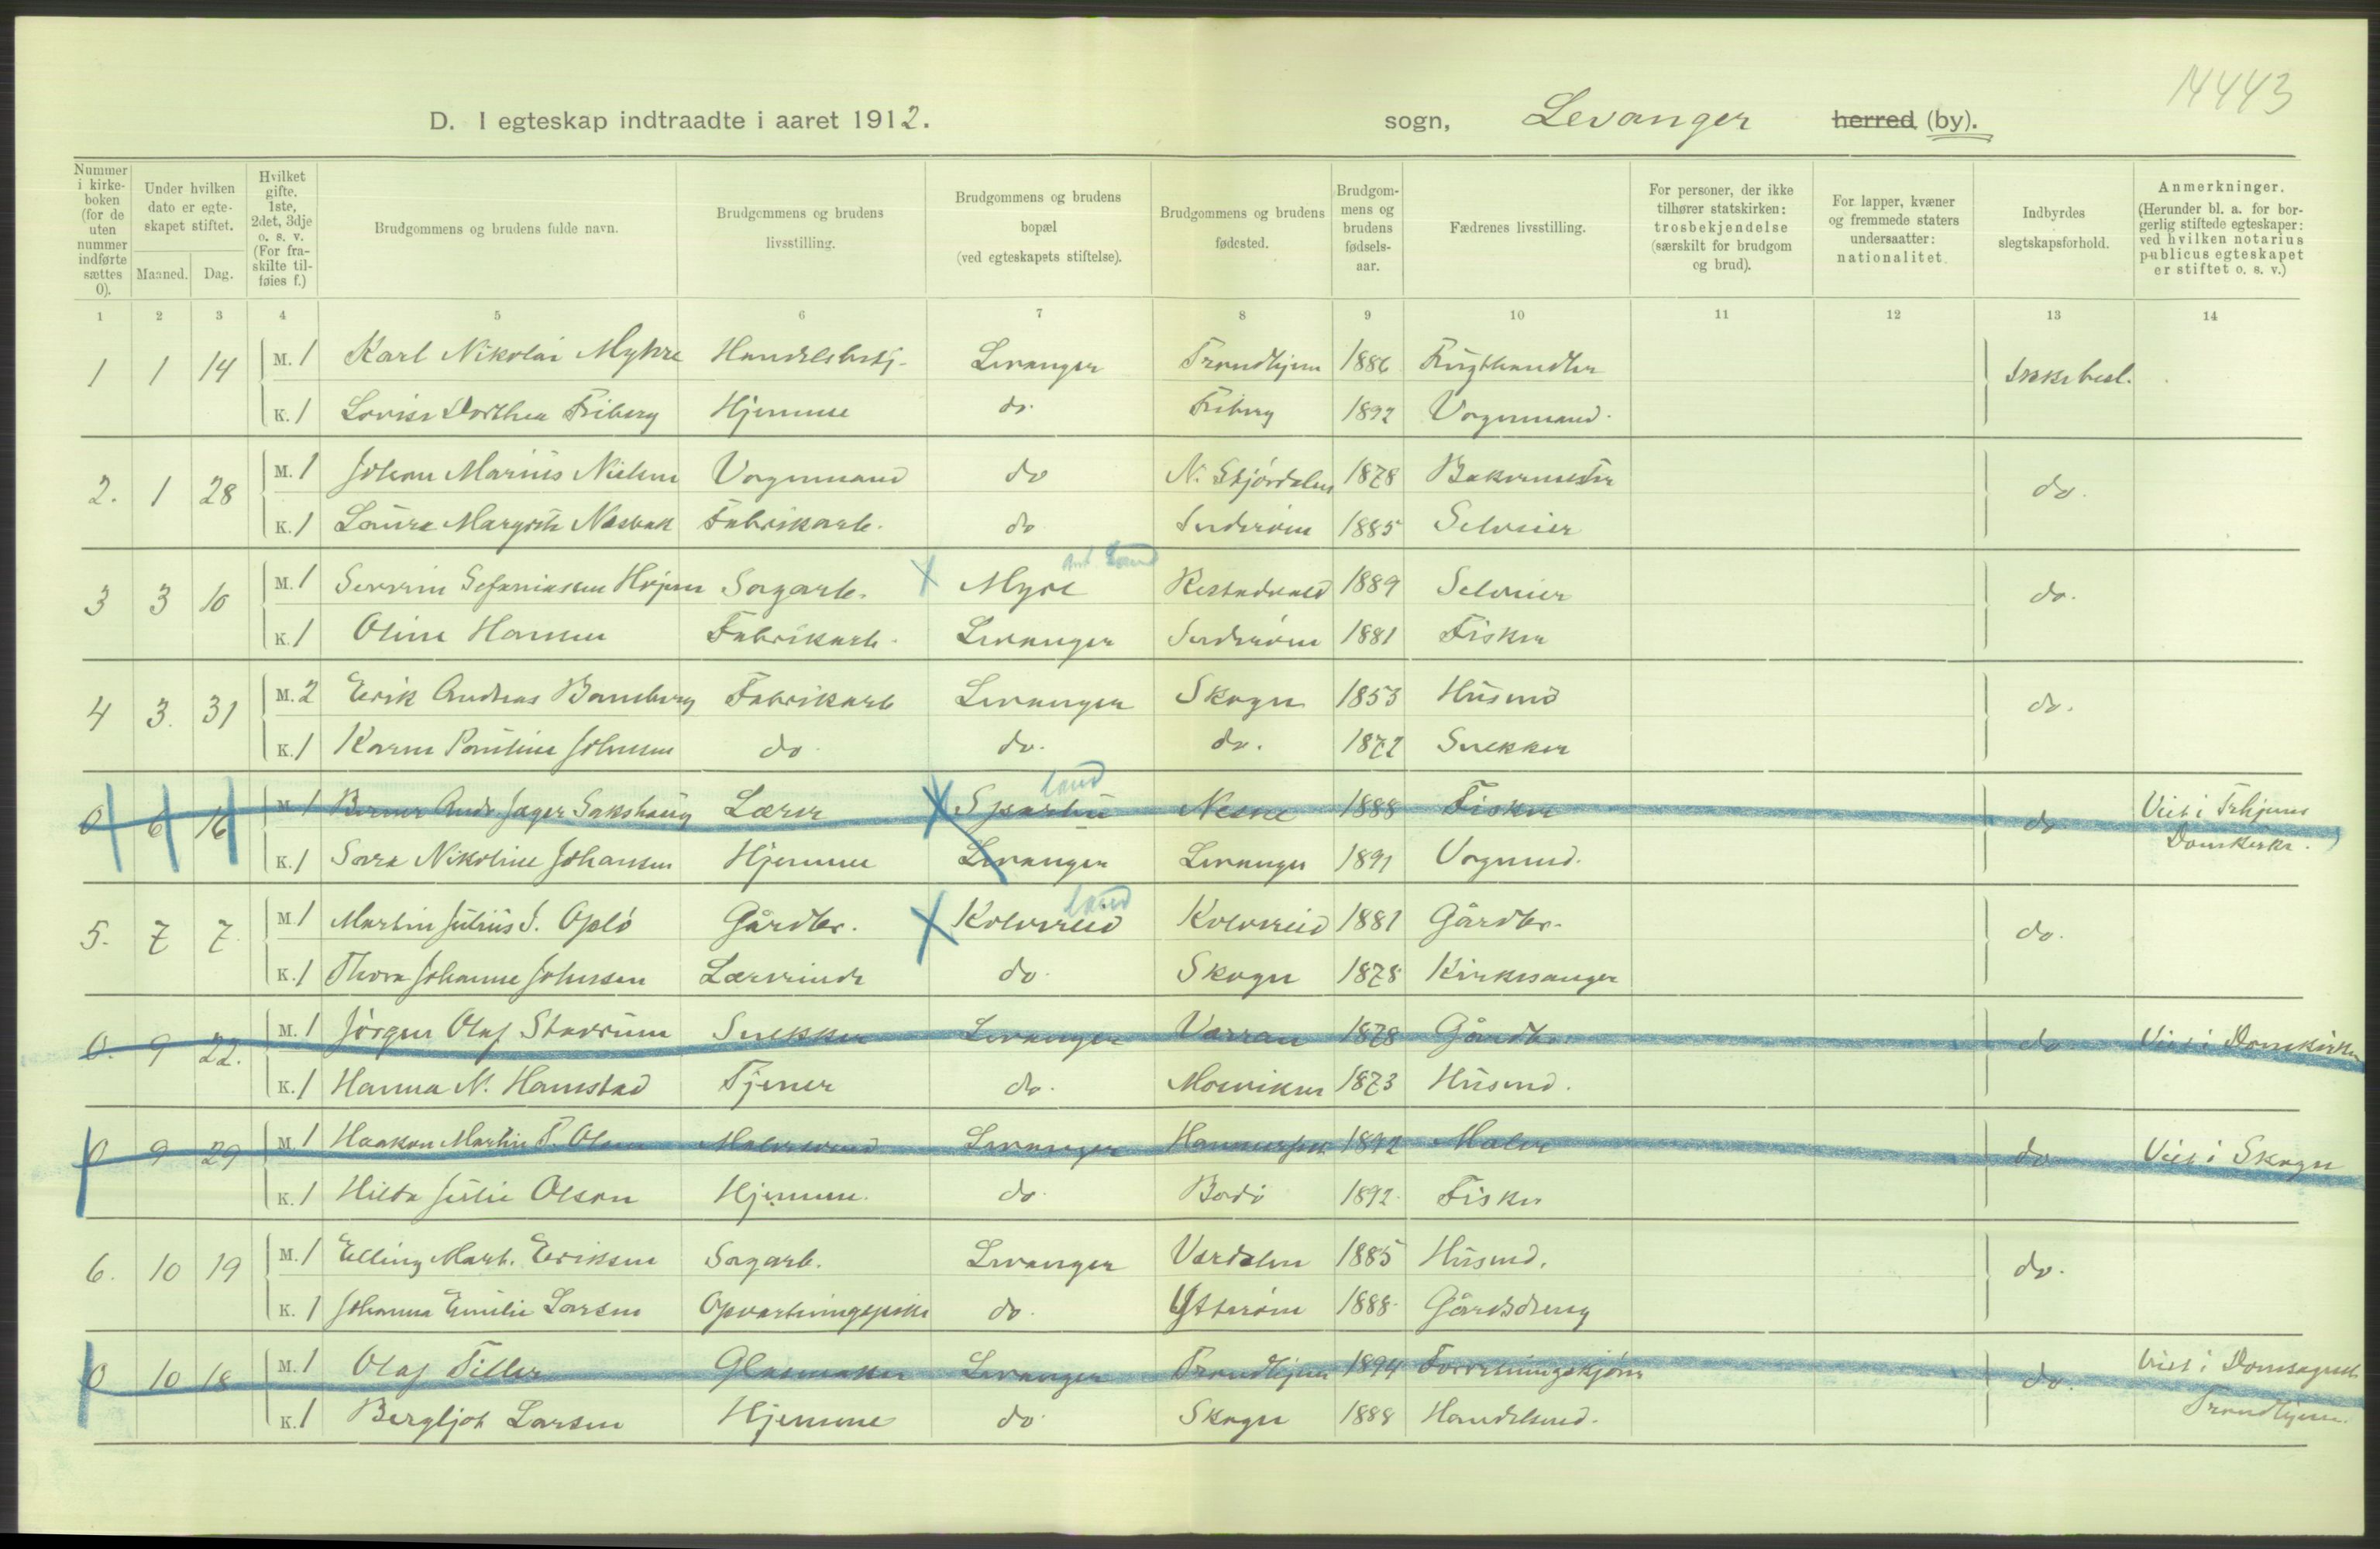 14443
D. I egteskap indtraadte i aaret 1912. sogn, Levanger herred (by).
Nummer i kirke-boken (for de uten nummer indførte sættes 0). Under hvilken dato er egte-skapet stiftet. Maaned. Dag. Hvilket gifte. 1ste, 2det, 3dje o. s. v. (For fra-skilte til-føies f.) Brudgommens og brudens fulde navn. Brudgommens og brudens livsstilling. Brudgommens og brudens bopæl (ved egteskapets stiftelse). Brudgommens og brudens fødested. Brudgom-mens og brudens fødsels-aar. Fædrenes livsstilling. For personer, der ikke tilhører statskirken: trosbekjendelse (særskilt for brudgom og brud). For lapper, kvæner og fremmede staters undersaatter: nationalitet. Indbyrdes slegtskapsforhold. Anmerkninger. (Herunder bl. a. for bor-gerlig stiftede egteskaper: ved hvilken notarius publicus egteskapet er stiftet o. s. v.)
1 2 3 4 5 6 7 8 9 10 11 12 13 14
1 1 14 M. 1 Karl Nikolai Myhre Handelsbetj. Levanger Trondhjem 1886 Frugthandler Ikke besl.
K. 1 Lovise Dorthea Friberg Hjemme do. Friberg 1892 Vognmand.
2. 1 28 M. 1 Johan Marius Nielsen Vognmand do N. Stjørdalen 1878 Bakermester do.
K. 1 Laura Margrete Næsbak Fabrikarb. do Inderøen 1885 Selveier
3 3 10 M. 1 Severin Sefaniassen Sagarb. X Myre Land 1889 Selveier do.
K. 1 Oline Hansen Fabrikarb. Levanger Inderøen 1881 Fisker
4 3. 31 M. 2 Erik Andreas Bamberg Fabrikarb Levanger Skogn 1853 Husmd do.
K. 1 Karen Pauline Johnsen do. do. do. 1872 Snekker
0 6 16 M. 1 Berner Andr Jager Sakshaug Lærer X Sparbu land Nesne 1888 Fisker do Viet i Trhjems
K. 1 Sara Nikoline Johansen Hjemme Levanger Levanger 1891 Vognmd. Domkirke.
5. 7 7. M. 1 Martin Julius J. Oplø Gårdbr. X Kolvereid land Kolvereid 1881 Gårdbr. do.
K. 1 Thora Johanne Johnsen Lærerinde do. Skogn 1878 Kirkesanger
0. 9 22. M. 1 Jørgen Olaf Stavrum Snekker Levanger Værran 1878 Gårdbr. do Viet i Domkirken
K. 1 Hanna N. Hamstad Tjener do. Mosviken 1873 Husmd.
0 9 29 M. 1 Haakon Martin T. Olsen Malersvend Levanger 1892 Maler do Viet i Skogn
K. 1 Hilda Julie Olsen Hjemme. do. Bodø 1892. Fisker
6. 10 19 M. 1 Elling Mart. Eriksen Sagarb. Levanger Værdalen 1885 Husmd. do.
K. 1 Johanna Emilie Larsen Opvartningspike do. Ytterøen 1888. Gårdsdreng
0 10 18 M. 1 Olaf Tiller Glasmaker Levanger Trondhjem 1894 Forretningskjører do. Viet i Domsognet
K. 1 Bergljot Larsen Hjemme do. Skogn 1888 Handelsmd. Trondhjem.